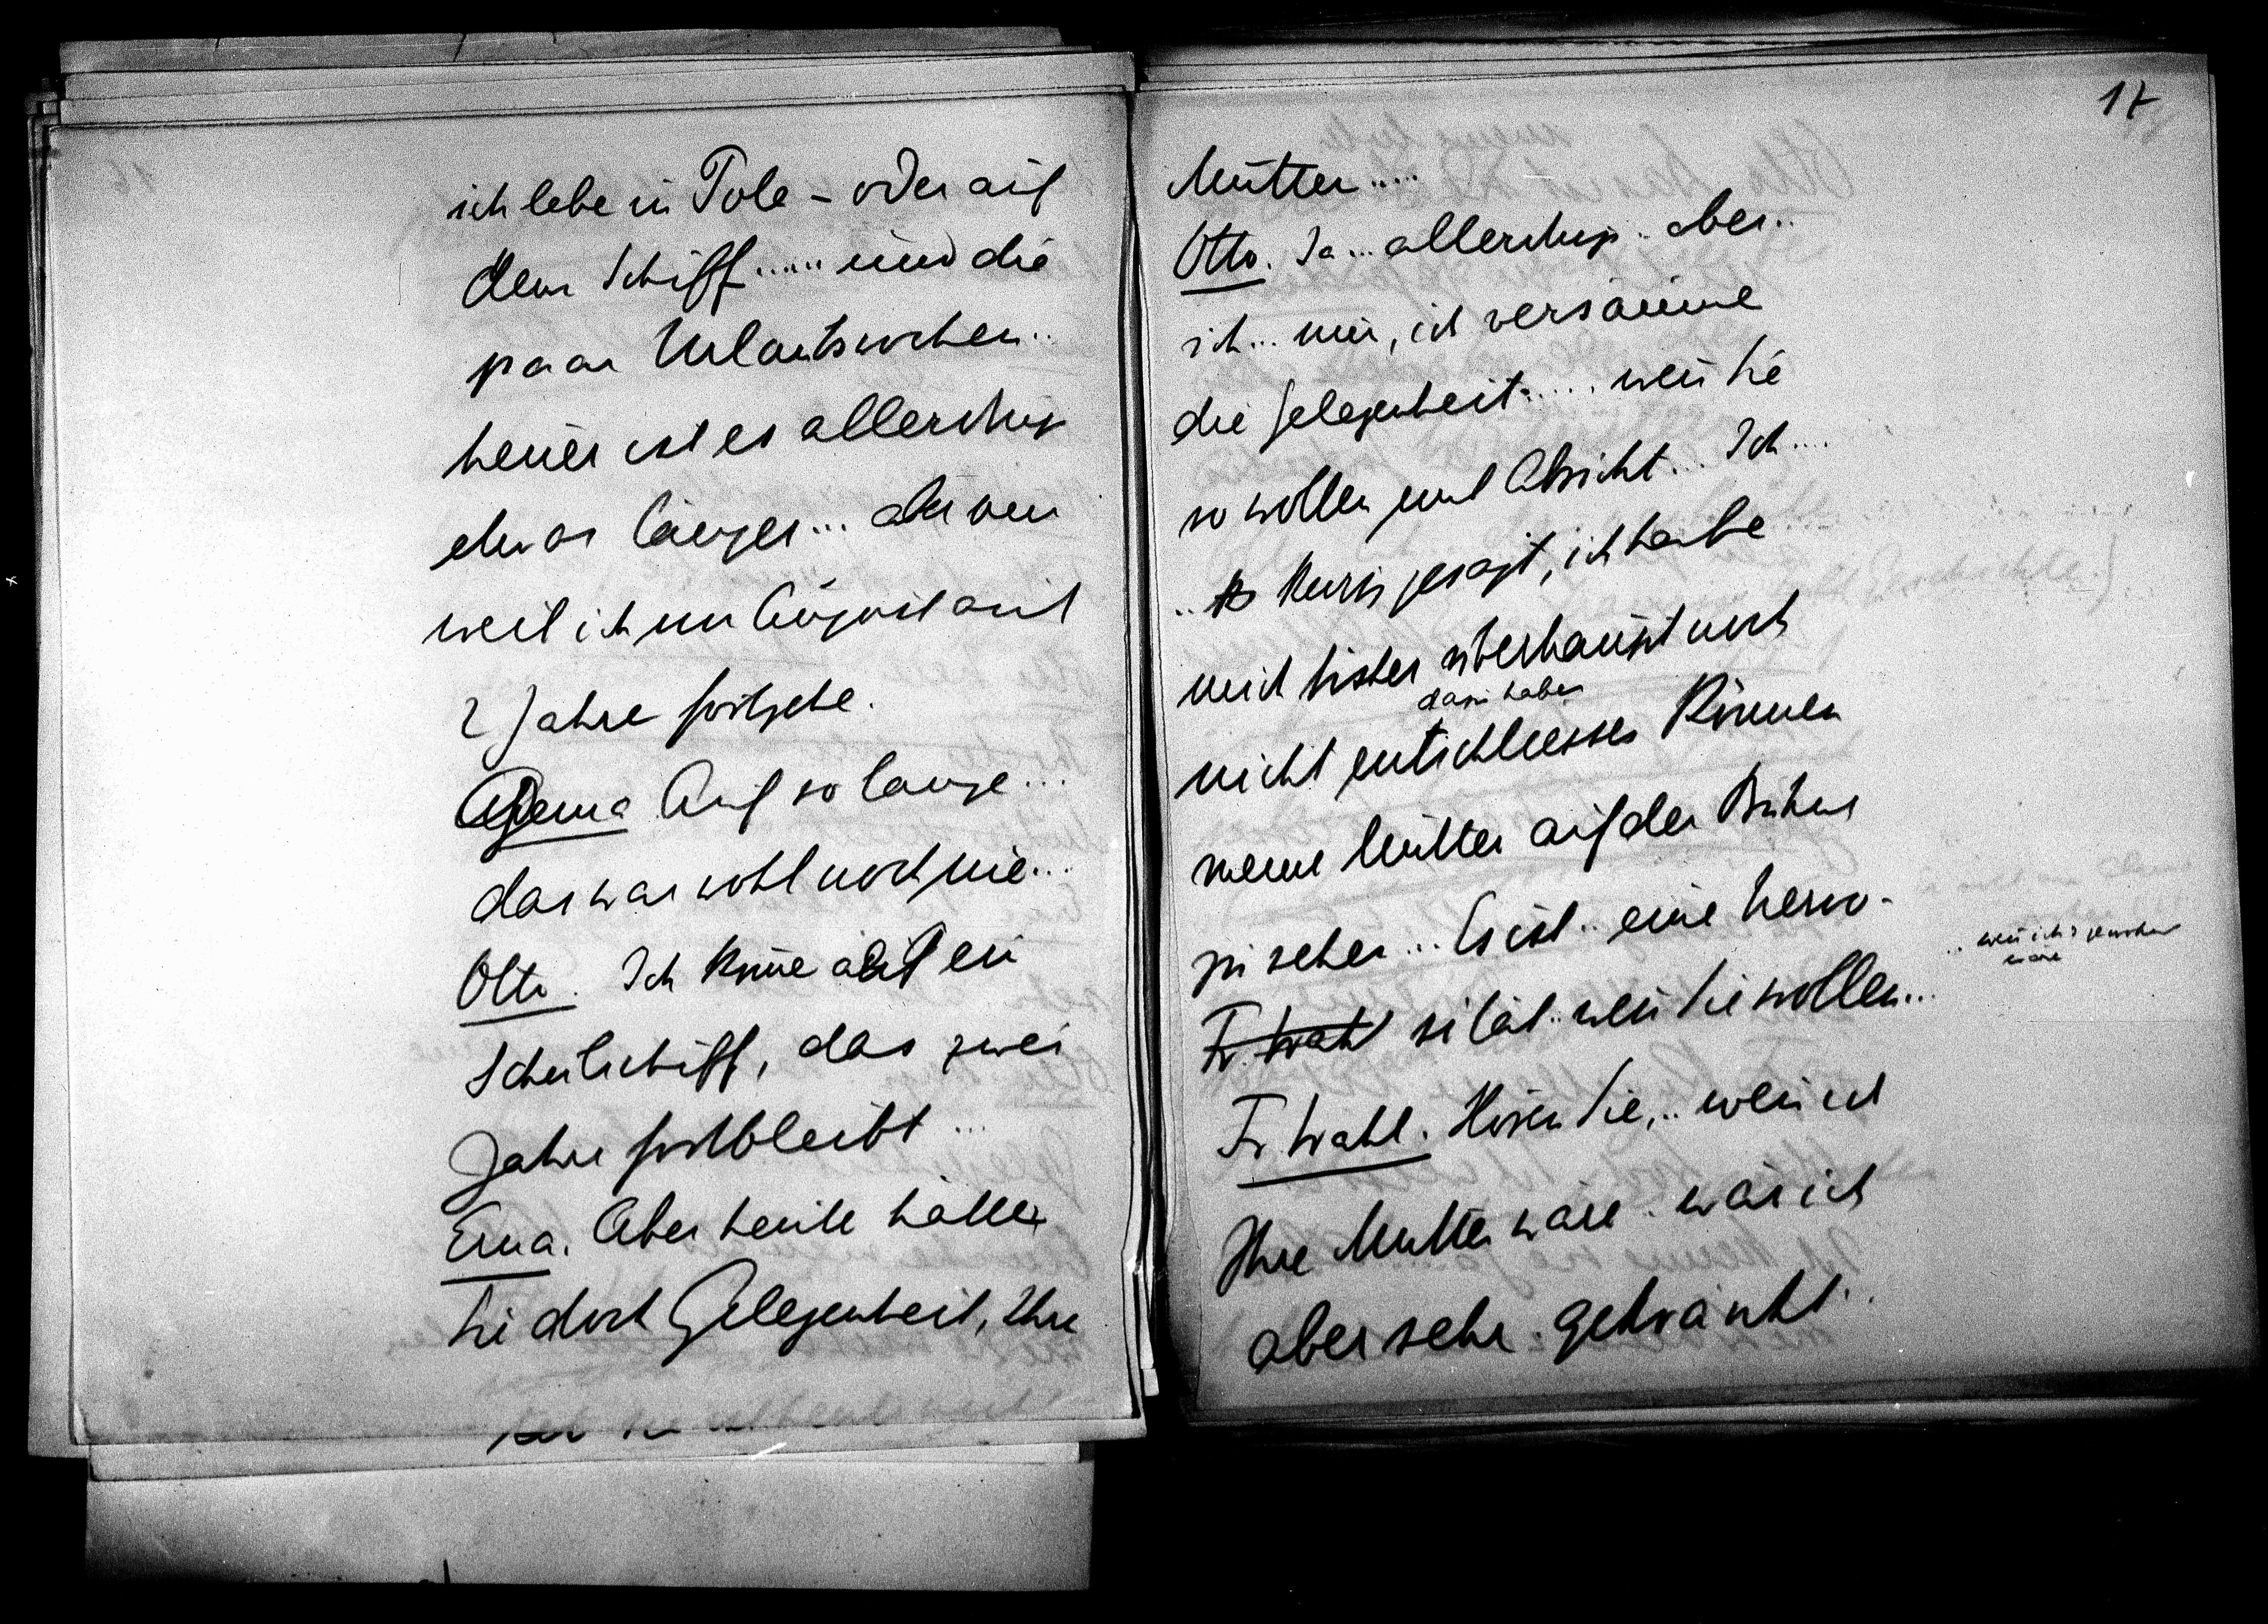 ich lebe in Pola – oder auf
dem Schiff ..... und die
paar Urlaubswochen ..
heuer ist es allerdings
etwas länger ... aber nur
weil ich im August auf
2 Jahre fortgehe.
Erna Auf so lange ...
das war wohl noch nie ...
Otto. Ich komme auf ein
Schulschiff, das zwei
Jahre fortbleibt ...
Erna. Aber heute hätten
Sie doch Gelegenheit, Ihre
17
Mutter .....
Otto. Ja ... allerdings .. aber ..
ich ... nun, ich versäume
die Gelegenheit ..... wenn Sie
so wollen mit Absicht ... Ich ....
.. Kurz gesagt, ich habe
mich bisher überhaupt noch
dazu haben
nicht entschliessen können
meine Mutter auf der Bühne
zu sehen ... Es ist .. eine Nervo-
Fr. Wahl sität .. wenn Sie wollen ...
.. wenn ich
wäre
Fr Wahl. Hören Sie, .. wenn ich
Ihre Mutter wäre .. wär ich
aber sehr gekränkt ..